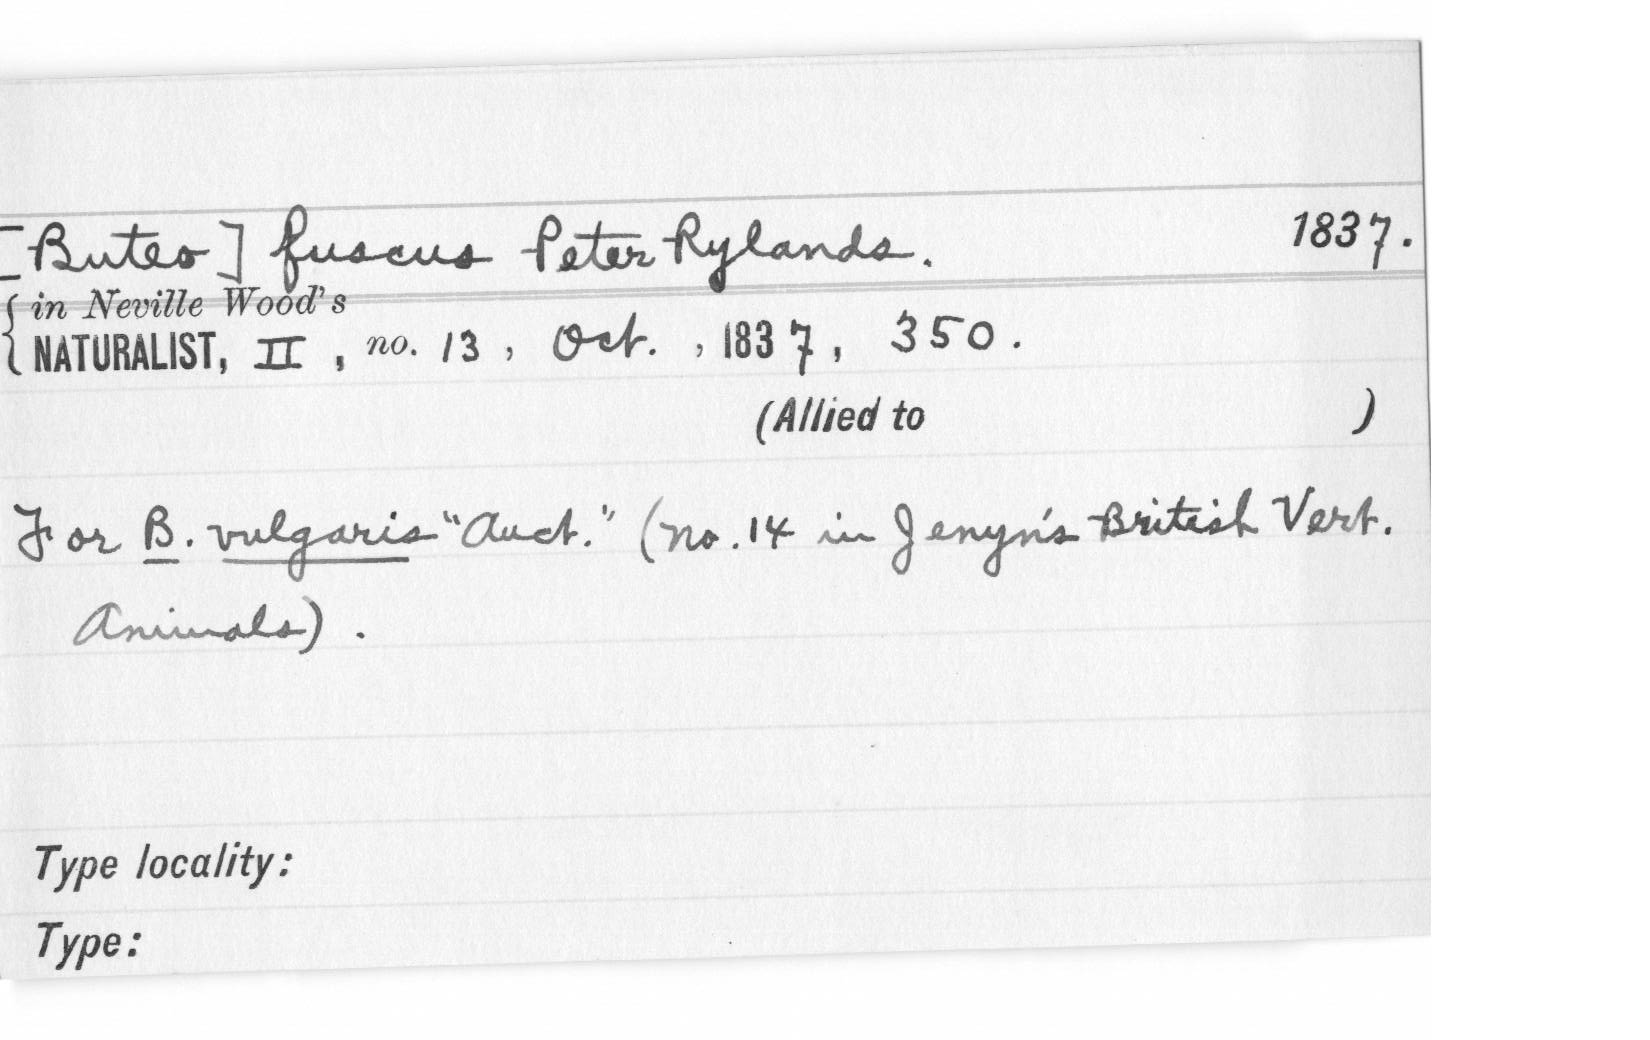 [Buteo] fuscus Peter Rylands. 1837.
in Neville Wood's
NATURALIST, II, no. 13, Oct., 1837, 350.
(Allied to )
For B. vulgaris "Auct." (no. 14 in Jenyn's British Vert.
Animals).
Type locality:
Type: